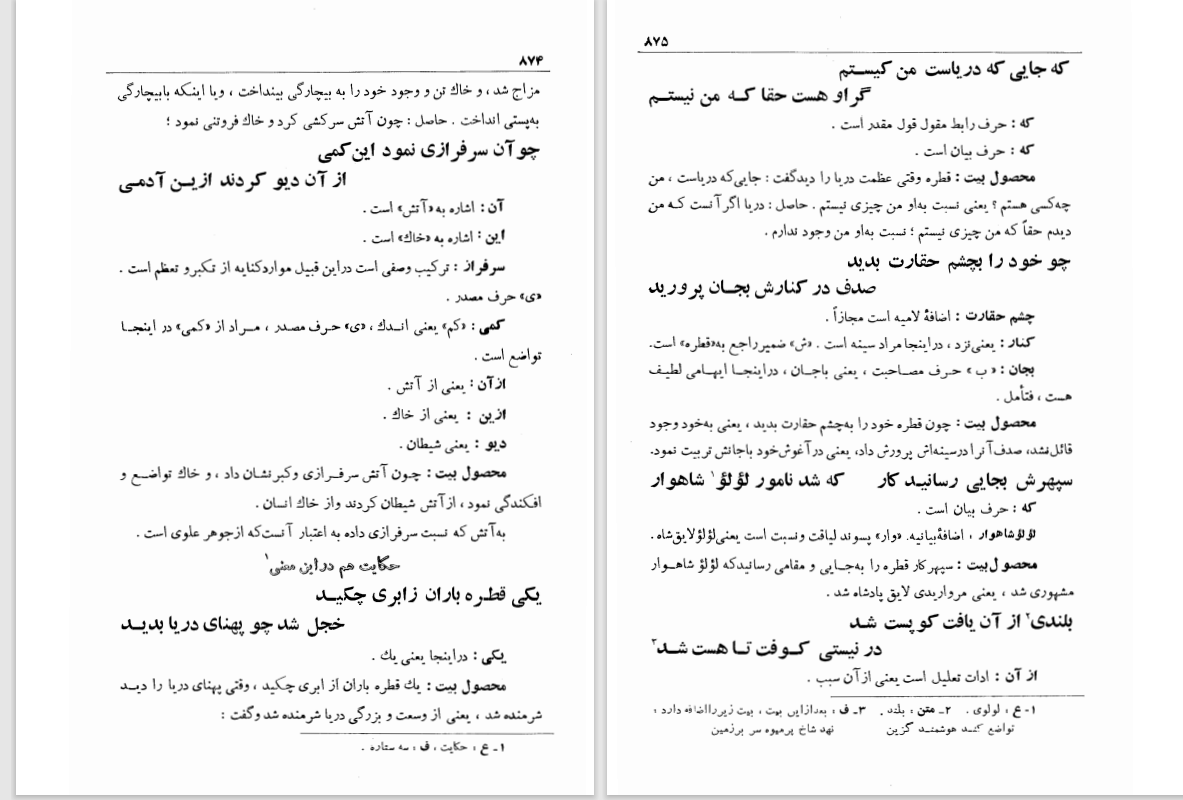 ۸۷۴
مزاج شد ، و خاك تن و وجود خود را به بیچارگی بینداخت ، ویا اینکه بابیچارگی
به‌پستی انداخت . حاصل : چون آتش سرکشی کرد و خاك فروتنی نمود ؛
چوآن سرفرازی نمود این‌کمی
از آن دیو کردند ازیــن آدمـی
آن : اشاره به «آتش» است .
این : اشاره به «خاك» است .
سرفراز : ترکیب وصفی است دراین قبیل مواردکنایه از تکبرو تعظم است .
«ی» حرف مصدر .
کمی : «کم» یعنی انـدك ، «ی» حـرف مصـدر ، مـراد از «کمی» در اینجـا
تواضع است .
ازآن : یعنی از آتش .
ازین : یعنی از خاك .
دیو : یعنی شیطان .
محصول بیت : چـون آتش سرفـرازی وکبرنشـان داد ، و خاك تواضـع و
افکندگی نمود ، ازآتش شیطان کردند واز خاك انسان .
به‌آتش که نسبت سرفرازی داده به اعتبار آنست‌که ازجوهر علوی است .
حکایت هم دراین معنی۱
یکی قطـره باران زابری چکیـد
خجل شد چو پهنای دریا بدیـد
یکی : دراینجا یعنی یك .
محصول بیت : یك قطره باران از ابری چکید ، وقتی پهنای دریا را دیـد
شرمنده شد ، یعنی از وسعت و بزرگی دریا شرمنده شد وگفت :
۱ـ ع ، حکایت ، ف : سه ستاره .
۸۷۵
که جایی که دریاست من کیسـتم
گر او هست حقا کـه من نیستـم
که : حرف رابط مقول قول مقدر است .
که : حرف بیان است .
محصول بیت : قطره وقتی عظمت دریا را دیدگفت : جایی‌که دریاست ، من
چه‌کسی هستم ؟ یعنی نسبت به‌او من چیزی نیستم . حاصل : دریا اگر آنست کـه من
دیدم حقاً که من چیزی نیستم ؛ نسبت به‌او من وجود ندارم .
چو خود را بچشم حقارت بدید
صدف در کنارش بجـان پرورید
چشم حقارت : اضافهٔ لامیه است مجازاً .
کنار : یعنی‌نزد ، دراینجا مراد سینه است . «ش» ضمیرراجع به«قطره» است.
بجان : « ب » حـرف مصـاحبت ، یعنی باجـان ، دراینجـا ایهـامی لطیـف
هست ، فتأمل .
محصول بیت : چون قطره خود را به‌چشم حقارت بدید ، یعنی به‌خود وجود
قائل‌نشد، صدف‌آنرا درسینه‌اش پرورش داد، یعنی درآغوش‌خود باجانش تربیت نمود.
سپهرش بجایی رسانیـد کار که شد نامور لؤلؤ۱ شاهوار
که : حرف بیان است .
لؤلؤشاهوار ، اضافهٔ‌بیانیه. «وار» پسوند لیاقت ونسبت است یعنی‌لؤلؤلایق‌شاه.
محصول‌بیت : سپهرکار قطره را به‌جـایی و مقامی رسانیدکه لؤلؤ شاهـوار
مشهوری شد ، یعنی مرواریدی لایق پادشاه شد .
بلندی۲ از آن یافت کو پست شـد
در نیستی کـوفت تـا هست شـد۳
از آن : ادات تعلیل است یعنی ازآن سبب .
۱ـ ع ، لولوی . ۲ـ متن ، بلند . ۳ـ ف ، بعدازاین بیت ، بیت زیررااضافه دارد ،
تواضع کنـد هوشمنـد گزین نهد شاخ پرمیوه سر برزمین